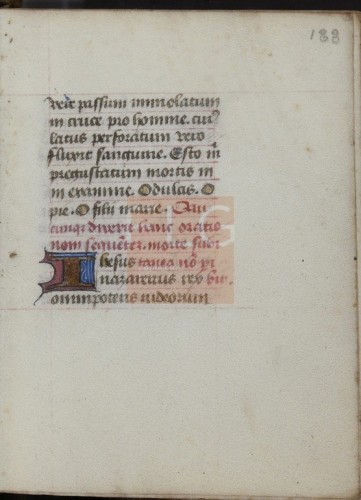 133
vere passum immolatum
in cruce pro homine. cui9
latus perforatum vero
fluxit sanguine. Esto
pregustatum mortis in
examine. O dulcis. O
pie. O filii marie. Qui
hanc oratio
nem morte subi
Ihesus
nazarenus rex
omnipotens iudeorum